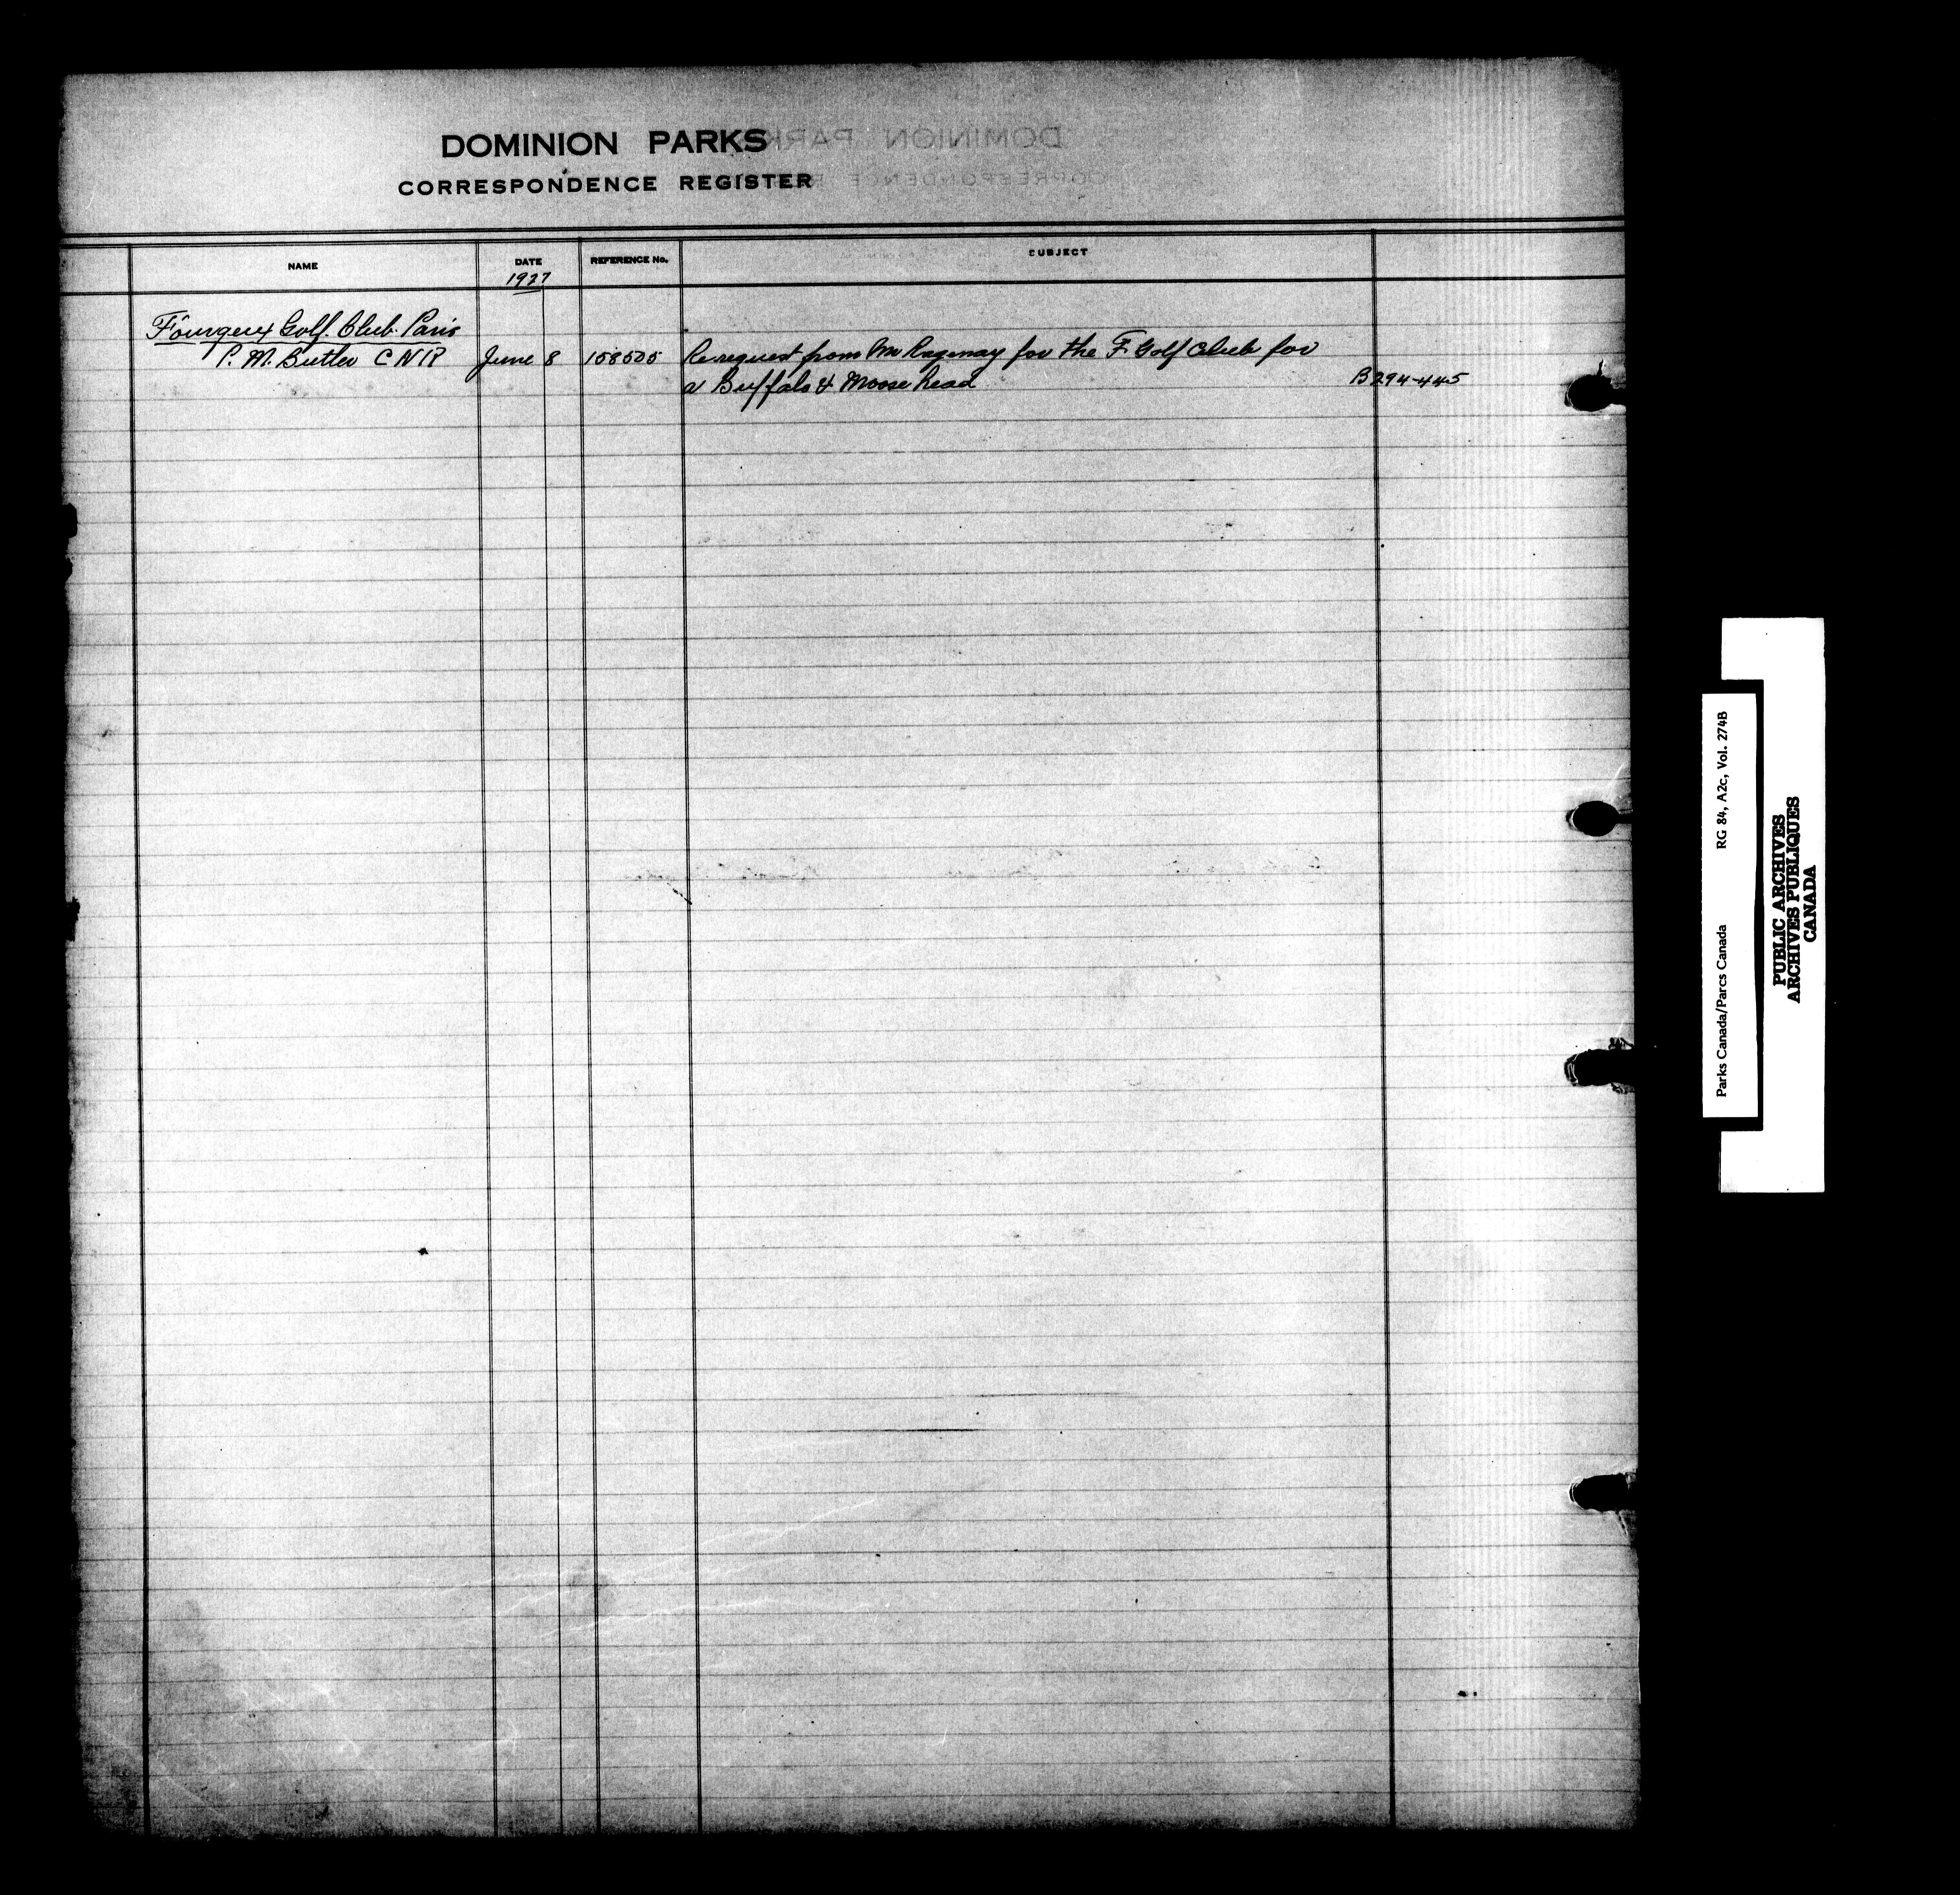 DOMINION PARKS
CORRESPONDENCE REGISTER
NAME DATE REFERENCE No. SUBJECT
1927
Fourqeux Golf Club Paris
P. M. Butler C N R June 8 158505 Re request from Mr for the F Golf Club for
a Buffalo & Moose head B294-445
Parks Canada/Parcs Canada RG 84, A2c, Vol. 274B
PUBLIC ARCHIVES
ARCHIVES PUBLIQUES
CANADA